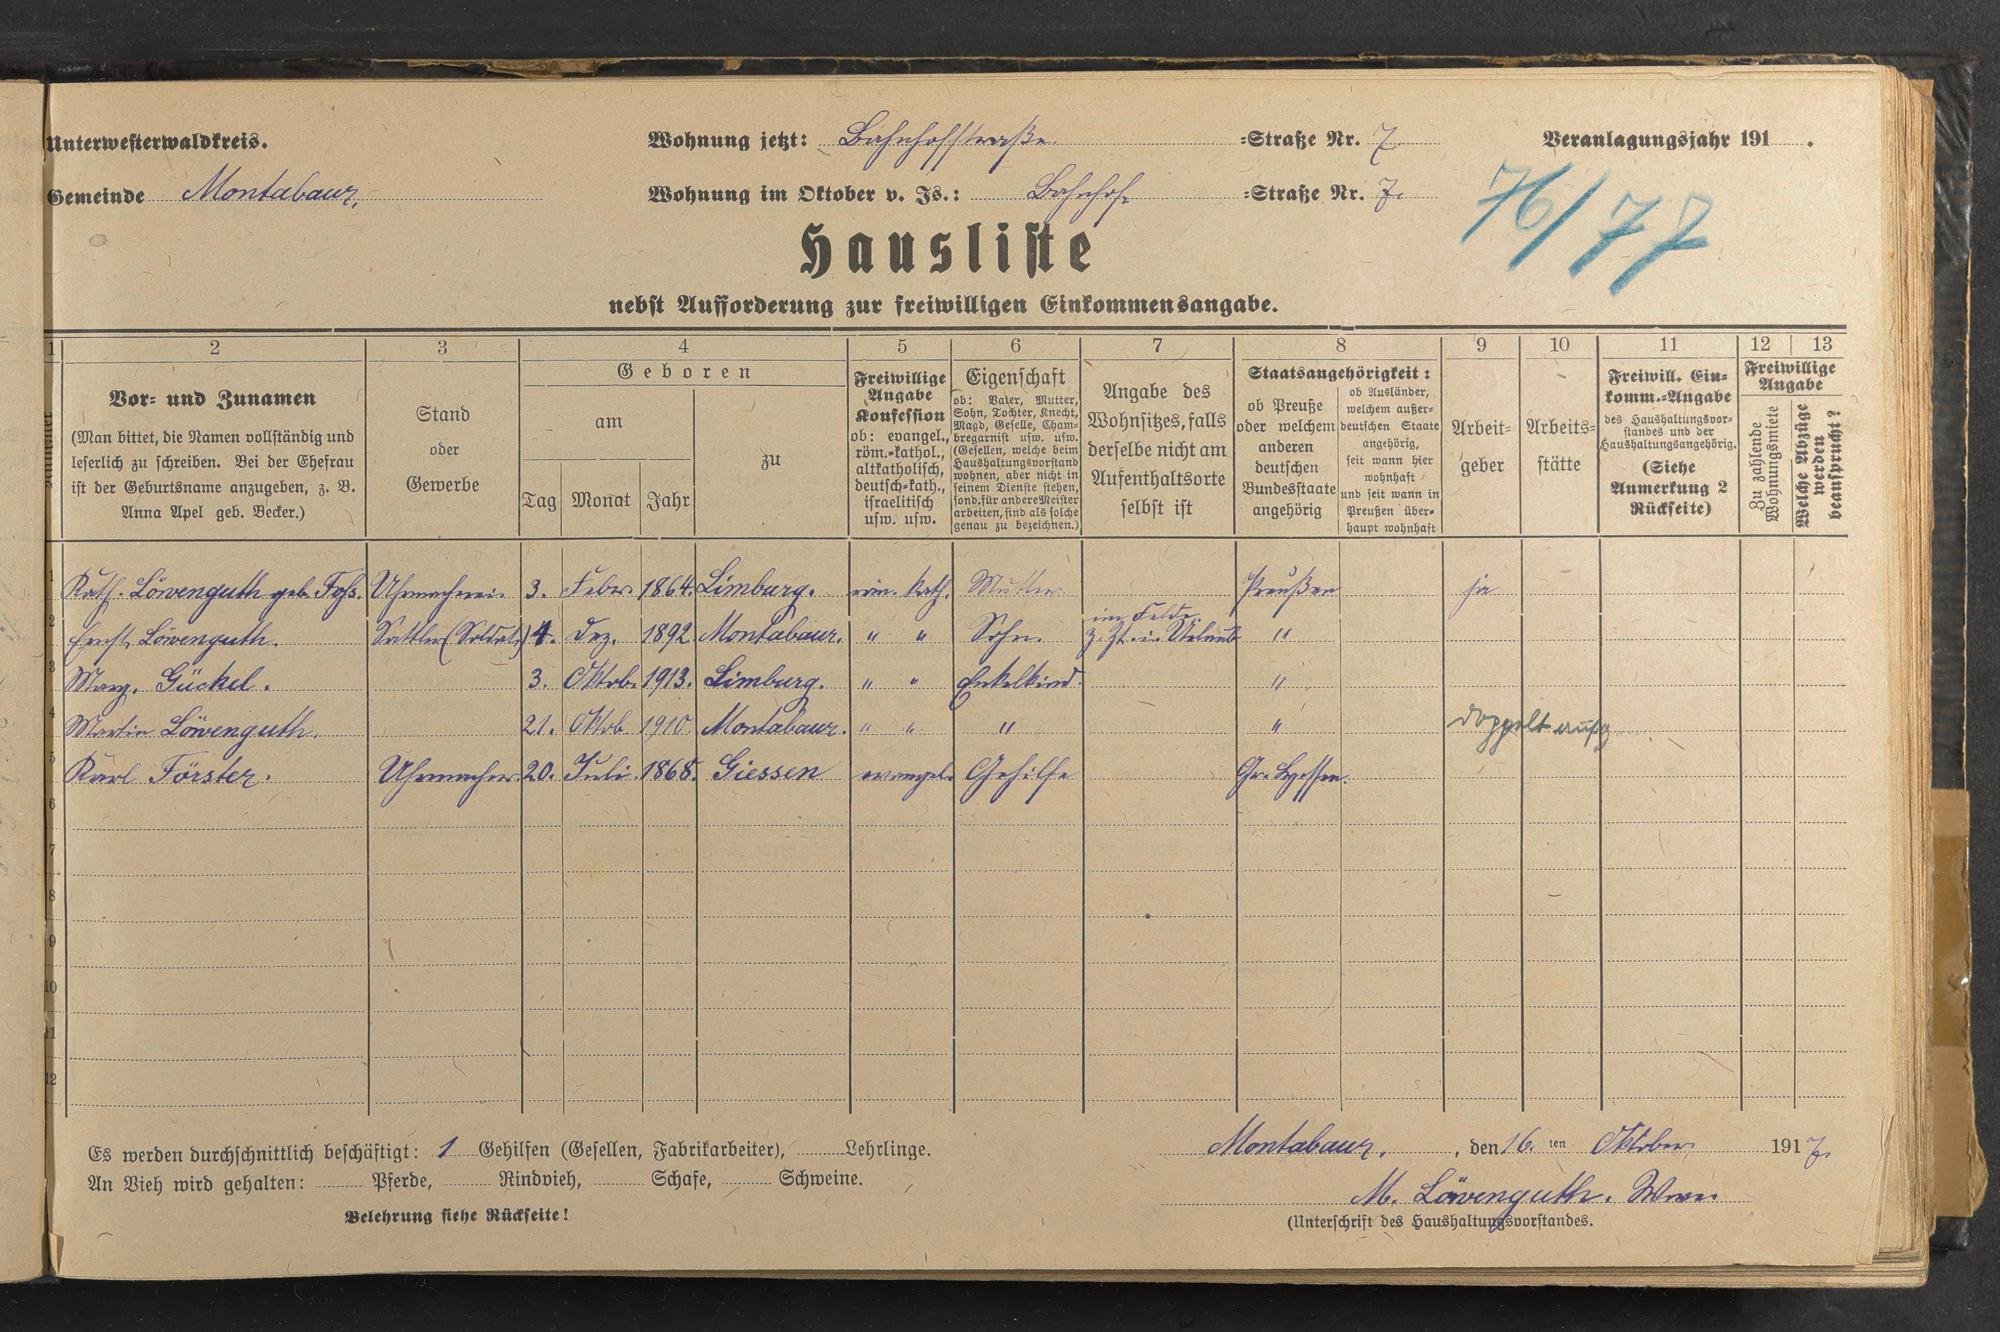 Unterwesterwaldkreis.
Wohnung jetzt: Bahnhofstraße =Straße Nr. 7
Veranlagungsjahr 191 .
Gemeinde Montabaur,
Wohnung im Oktober v. Js.: Bahnhof =Straße Nr. 7.
76/77
Hausliste
nebst Aufforderung zur freiwilligen Einkommensangabe.
1 2 3 4 5 6 7 8 9 10 11 12 13
Vor- und Zunamen
(Man bittet, die Namen vollständig und
leserlich zu schreiben. Bei der Ehefrau
ist der Geburtsname anzugeben, z. B.
Anna Apel geb. Becker.)
Stand
oder
Gewerbe
Geboren
am
Tag Monat Jahr
zu
Freiwillige
Angabe
Konfession
ob: evangel.,
röm.-kathol.,
altkatholisch,
deutsch-kath.,
israelitisch
usw. usw.
Eigenschaft
ob: Vater, Mutter,
Sohn, Tochter, Knecht,
Magd, Geselle, Cham-
bregarnist usw. usw.
(Gesellen, welche beim
Haushaltungsvorstand
wohnen, aber nicht in
seinem Dienste stehen,
sond. für andere Meister
arbeiten, sind als solche
genau zu bezeichnen.)
Angabe des
Wohnsitzes, falls
derselbe nicht am
Aufenthaltsorte
selbst ist
Staatsangehörigkeit:
ob Preuße
oder welchem
anderen
deutschen
Bundesstaate
angehörig
ob Ausländer,
welchem außer-
deutschen Staate
angehörig,
seit wann hier
wohnhaft
und seit wann in
Preußen über-
haupt wohnhaft
Arbeit-
geber
Arbeits-
stätte
Freiwill. Ein-
komm.-Angabe
des Haushaltungsvor-
standes und der
Haushaltungsangehörig.
(Siehe
Anmerkung 2
Rückseite)
Freiwillige
Angabe
Zu zahlende
Wohnungsmiete
Welche Abzüge
werden
beansprucht?
1 Kath. Löwenguth geb. Uhrmacherei. 3. Febr. 1864. Limburg. röm. kath. Mutter Preußen ja
2 Ernst Löwenguth. Sattler (Soldat) 4. Dez. 1892 Montabaur. " " Sohn im Felde
z. Zt. in Urlaub "
3 Marg. Gückel. 3. Oktob. 1913. Limburg. " " Enkelkind. "
4 Martin Löwenguth. 21. Oktob. 1910 Montabaur. " " " " doppelt aufg
5 Karl Förster. Uhrmacher. 20. Juli. 1868. Giessen evangel. Gehilfe Gr. Hessen.
6
7
8
9
10
11
12
Es werden durchschnittlich beschäftigt: 1 Gehilfen (Gesellen, Fabrikarbeiter), Lehrlinge.
An Vieh wird gehalten: Pferde, Rindvieh, Schafe, Schweine.
Belehrung siehe Rückseite!
Montabaur, , den 16. ten Oktober 1917.
M. Löwenguth. Wwe.
(Unterschrift des Haushaltungsvorstandes.